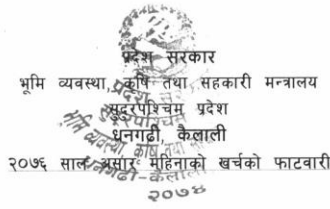 प्रदेश सरकार
भूमि व्यवस्था, कृषि तथा सहकारी मन्त्रालय
सुदुरपश्चिम प्रदेश
धनगढी, कैलाली
२०७६ साल असार महिनाको खर्चको फाटवारी
२०७४